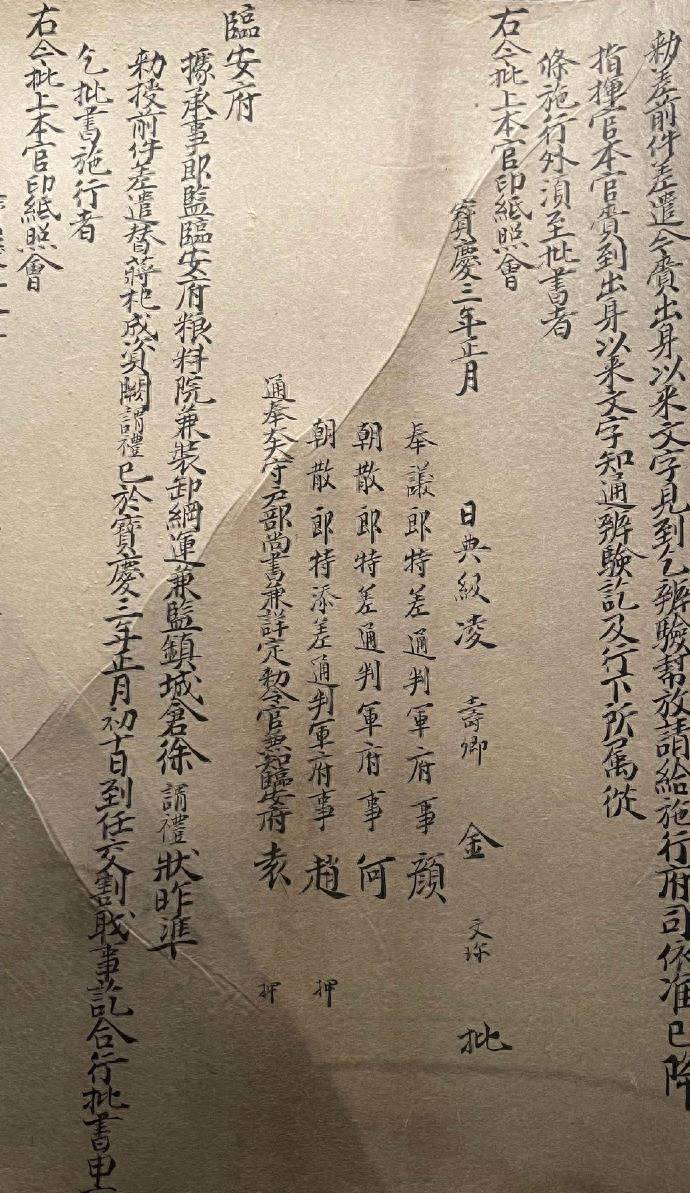 勑差前件差遣今賫出身以来文字見到乞辨驗幫放請給施行府司依准已降
指揮官本官賫到出身以来文字知通辨驗訖及行下所屬從
條施行外須至批書者
右今批上本官印紙照會
寶慶三年正月
日典級凌 壽卿 金 文珎 批
奉議郎特差通判軍府事顔
朝散郎特差通判軍府事何
朝散郎特添差通判軍府事趙 押
通奉大夫守户部尚書兼詳定勑令官兼知臨安府袁 押
臨安府
據承事郎監臨安府粮料院兼裝卸綱運兼監鎮城倉徐謂禮狀昨準
勑授前件差遣替蔣杞成資闕謂禮已於寶慶三年正月初十日到任交割職事訖合行批書申
乞批書施行者
右今批上本官印紙照會